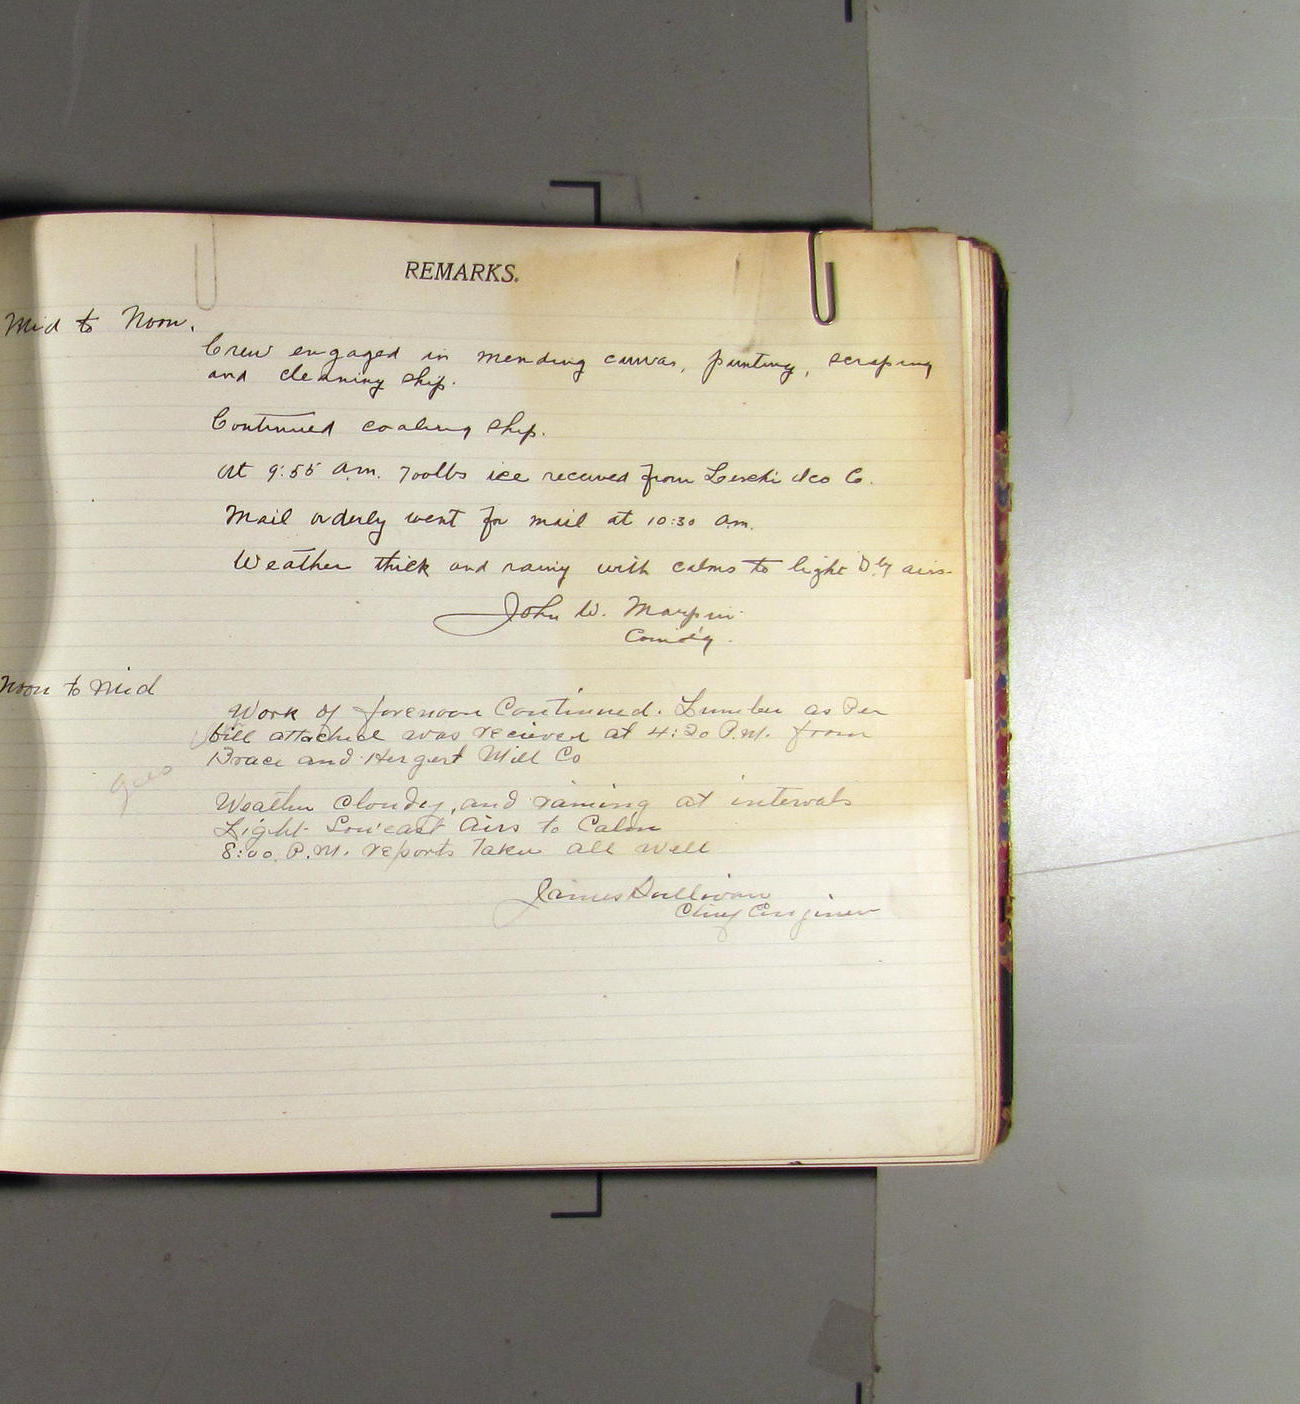 REMARKS.
Mid to Noon.
Crew engaged in mending canvas, painting, scraping
and cleaning ship.
Continued coaling ship.
At 9:55 a.m. 700lbs ice received from Leschi Ice Co.
Mail orderly went for mail at 10:30 a.m.
Weather thick and rainy with calms to light airs
John W.
Comd'g.
Noon to Mid
Work of forenoon Continued. Lumber as Per
bill attached was reciever at 4:20 P.M. from
Brace and Hergert Mill Co
Weather Cloudy, and raining at intervals
Light Sou'east Airs to Calm
8:00 P.M. reports Taken all well
James Sullivan
Chief Engineer